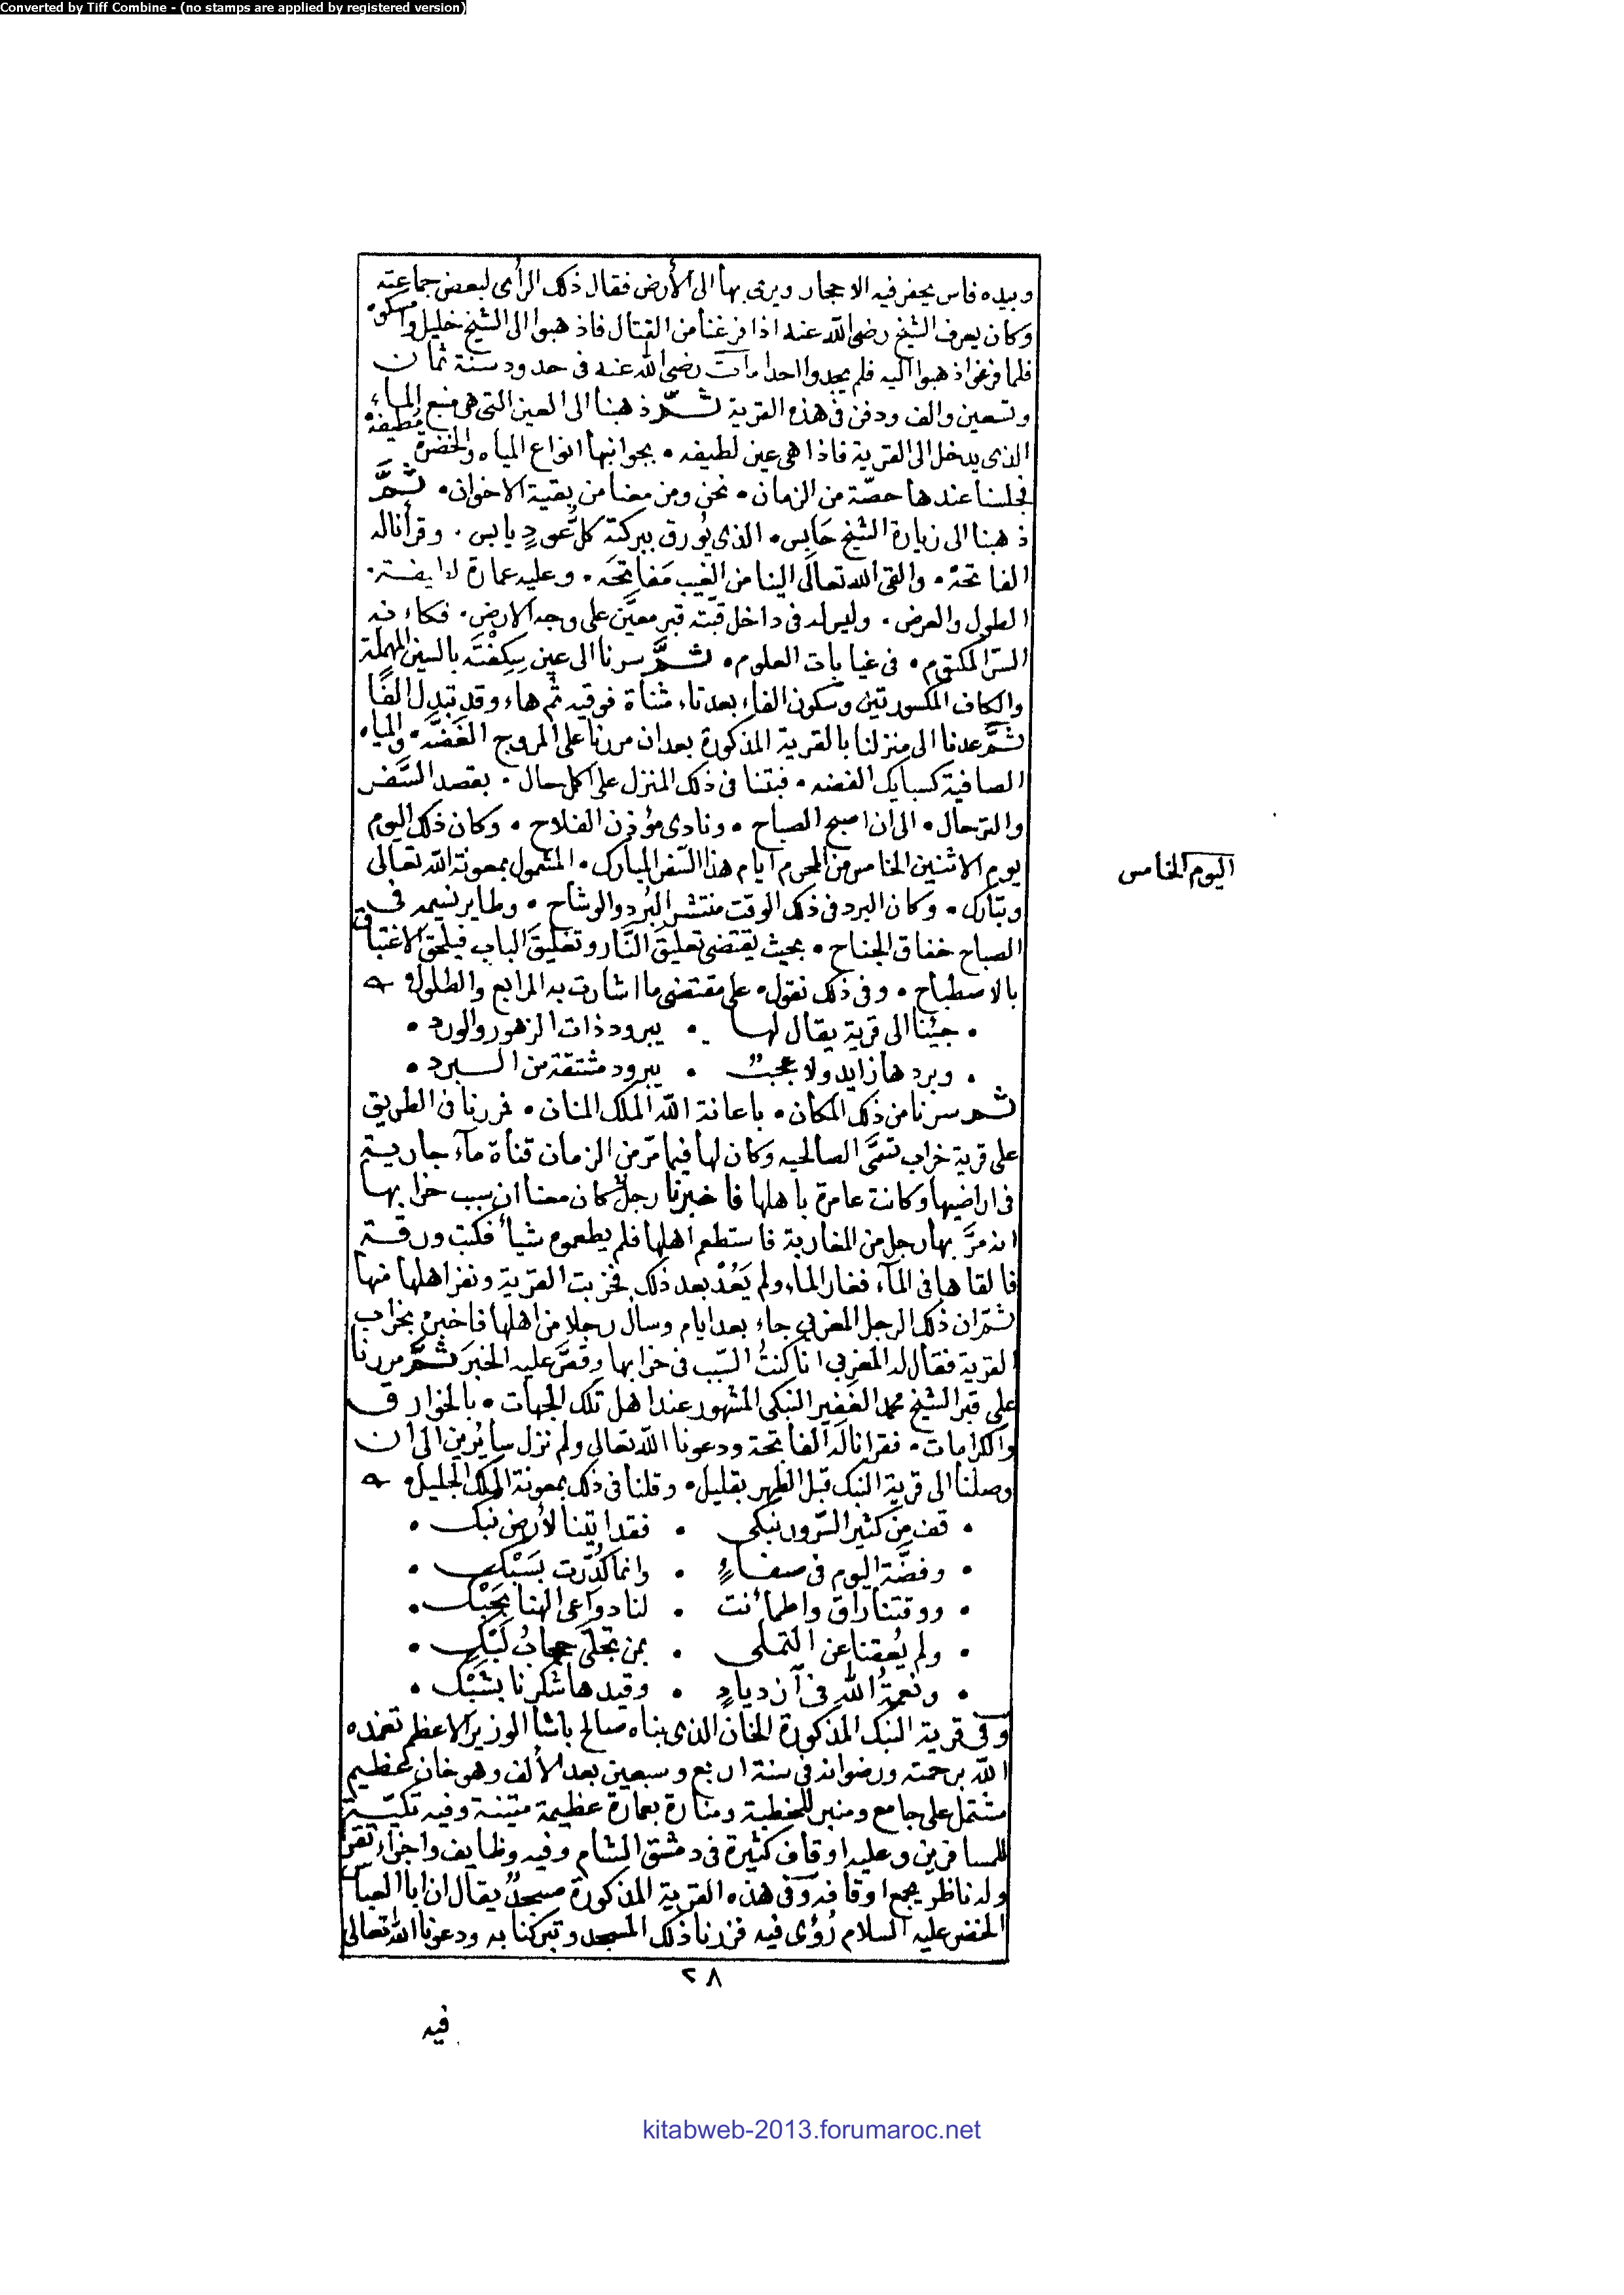 Converted by Tiff Combine - (no stamps are applied by registered version)
وبيده فاس يحفر فيه الاحجار ويرمى بها الى الأرض فقال ذلك الرأى لبعض جماعته
وكان يعرف الشيخ رضى الله عنه اذا فرغنا من القتال فاذهبوا الى الشيخ خليل وامسكوه
فلما فرغوا ذهبوا اليه فلم يجدوا احدا مات رضى الله عنه فى حدود سنة ثمان
وتسعين والف ودفن فى هذه القرية ثم ذهبنا الى العين التى هى منبع الماء
الذى يدخل الى القرية فاذا هى عين لطيفه • بجوانبها انواع المياه والخضرة مطيفة
فجلسنا عندها حصّة من الزمان • نحن ومن معنا من بقية الاخوان • ثمَّ
ذهبنا الى زيارة الشيخ حَابِس • الذى يُورق ببركته كلُّ عودٍ يابس • وقرأنا له
الفاتحة • والقى الله تعالى الينا من الغيب مَفاتِحَه • وعليه عمارة
الطول والعرض • وليس له فى داخل قبّته قبر معيَّن على وجه الارض • فكاءنه
السّر المكتوم • فى غيابات العلوم • ثمَّ سرنا الى عين سِكِفْتَه بالسين المهملة
والكاف المكسورتين وسكون الفاء بعد تاء مثناة فوقيه ثم هاء وقد تبدل الفًا
ثمَّ عدنا الى منزلنا بالقرية المذكورة بعد ان مررنا على المروج الغَضَّه • والمياه
الصافية كسبايك الفضه • فبتنا فى ذلك المنزل على اكل حال • بقصد السَّفر
والترحال • الى ان اصبح الصباح • ونادى مؤذن الفلاح • وكان ذلك اليوم
يوم الاثنين الخامس من المحرم ايام هذا السّفر المبارك • المشمول بمعونة الله تعالى
اليوم الخامس
وتبارك • وكان البرد فى ذلك الوقت منتشر البُرد والوشاح • وطاير نسيمه فى
الصباح خفاق الجناح • بحيث يقتضى تعليقَ النَّار وتغليقَ الباب فيلحق الاغتباق
بالاصطباح • وفى ذلك نقول • على مقتضى ما اشارت به المرابع والطلول •
• جئنا الى قرية يقال لها • يبرود ذات الزهور والورد •
• وبردها زايد ولا عجبٌ • يبرود مشتقة من البرد •
ثم سرنا من ذلك المكان • باعانة الله الملك المنان • فمررنا فى الطريق
على قرية خراب تسمَّى الصالحيه وكان لها فيما مرّ من الزمان قناة مآء جاريته
فى اراضيها وكانت عامرة باهلها فاخبرنا رجلٌ كان معنا ان سبب خرابها
انه مرَّ بها رجل من المغاربة فاستطعم اهلها فلم يطعموه شيأ فكتب ورقة
فالقاها فى المآء فغار الماء ولم يَعُدْ بعد ذلك فخربت القرية ونفر اهلها منها
ثمّ ان ذلك الرجل المغربي جاء بعد ايام وسال رجلا من اهلها فاخبره بخراب
القرية فقال له المغربي انا كنتُ السّبب فى خرابها وقصَّ عليه الخبرَ ثمَّ مررنا
على قبر الشيخ محمد الغَفِير النبكى المشهور عند اهل تلك الجهات • بالخوارق
والكرامات • فقرانا له الفاتحة ودعونا الله تعالى ولم نزل سايرين الى ان
وصلنا الى قرية النبك قبل الظهر بقليل • وقلنا فى ذلك بمعونة الملك الجليل •
• قف من كثير السّرور نبكى • فقد اتينا لأرض نبك •
• وفضّة اليوم فى صفاءٍ • وانما كُدّرت بسَبْكِ •
• ووقتنا راق واطمأنت • لنا دواعى الهنا بحَبْك •
• ولم يُعِقنا عن التملى • بمن تجلّى حجابُ لَبْكِ •
• ونعمةُ الله فى آزديادٍ • وقيدها شكرنا بشَبْك •
وفى قرية النبك المذكورة الخان الذى بناه صالح باشا الوزير الاعظم تغمده
الله برحمته ورضوانه فى سنة اربع وسبعين بعد الألف وهو خان عظيم
مشتمل على جامع ومنبر للخطبة ومنارة بعمارة عظيمة متينة وفيه تكيّة
للمسافرين وعليه اوقاف كثيرة فى دمشق الشام وفيه وظايف واجزاء تقرأ
وله ناظر يجمع اوقافه وفى هذه القرية المذكورة مسجدٌ يقال ان ابا العباس
الخضر عليه السلام رُؤى فيه فزرنا ذلك المسجد وتبركنا به ودعونا الله تعالى
٢٨
فيه
kitabweb-2013.forumaroc.net